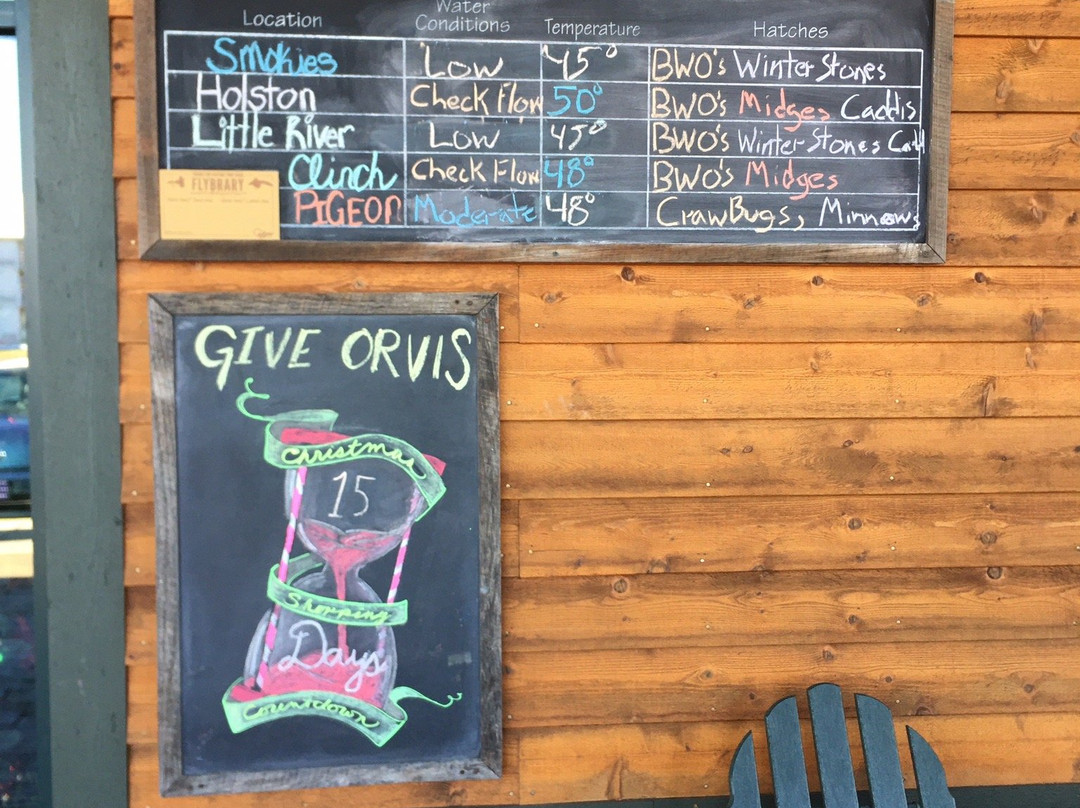 Location Water Conditions Temperature Hatches
Smokies Low 45° BWO's Winter Stones
Holston Check Flow 50° BWO's Midges Caddis
Little River Low 45° BWO's Winter Stones
Clinch Check Flow 48° BWO's Midges
PiGEON Moderate 48° CrawBugs, Minnows
FLYBRARY
GIVE ORVIS
Christmas
15
Shopping
Days
Countdown